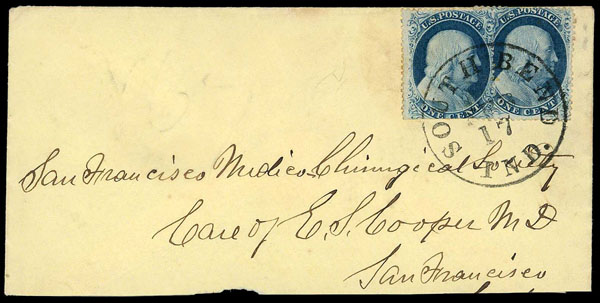 U.S. POSTAGE U.S. POSTAGE
ONE CENT ONE CENT
SOUTH BEND
17
IND.
San Francisco Medico Chirurgical Society
Care of E. S. Cooper M D
San Francisco